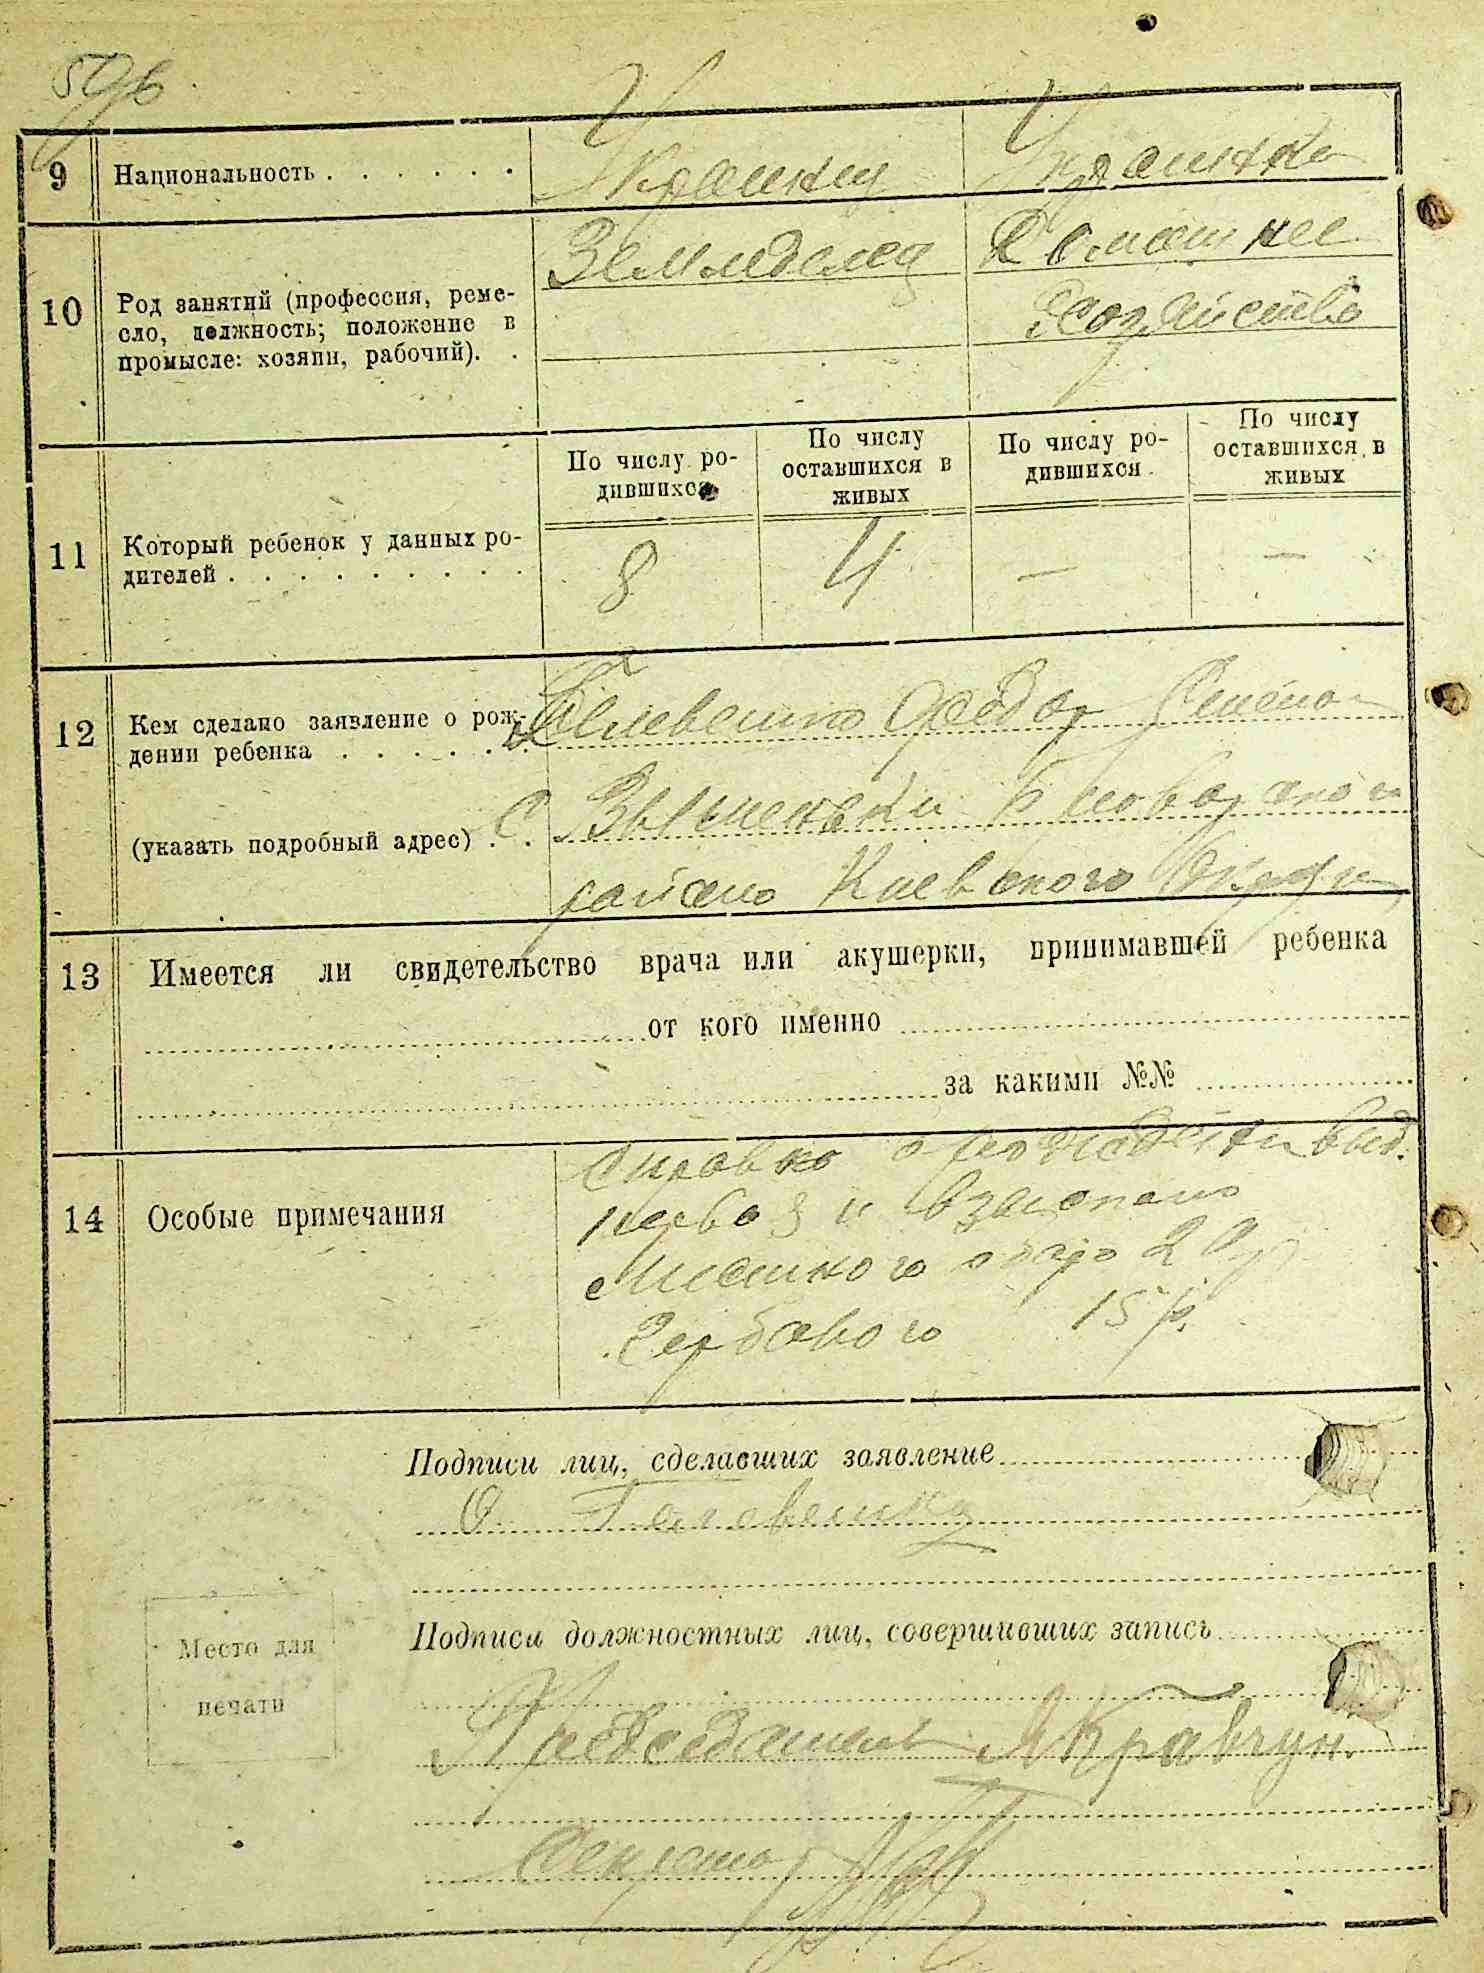 9 Национальность . . . . . .
Украинец Украинка
10 Род занятий (профессия, реме-
сло, должность; положение в
промысле: хозяин, рабочий). .
Земледелец Домашнее
хозяйство
11 Который ребенок у данных ро-
дителей . . . . . . . . .
По числу ро-
дившихся
По числу
оставшихся в
живых
По числу ро-
дившихся
По числу
оставшихся в
живых
8 4 — —
12 Кем сделано заявление о рож-
дении ребенка . . . . .
Федор
(указать подробный адрес) . .
С.
района Киевского округа
13 Имеется ли свидетельство врача или акушерки, принимавшей ребенка
от кого именно
за какими №№
14 Особые примечания
справка о рождении выд.
первая и взыскано
2
Гербового 15 к.
Подписи лиц, сделавших заявление
Подписи должностных лиц, совершивших запись
Место для
печати
Председатель Кравчук
Секретарь